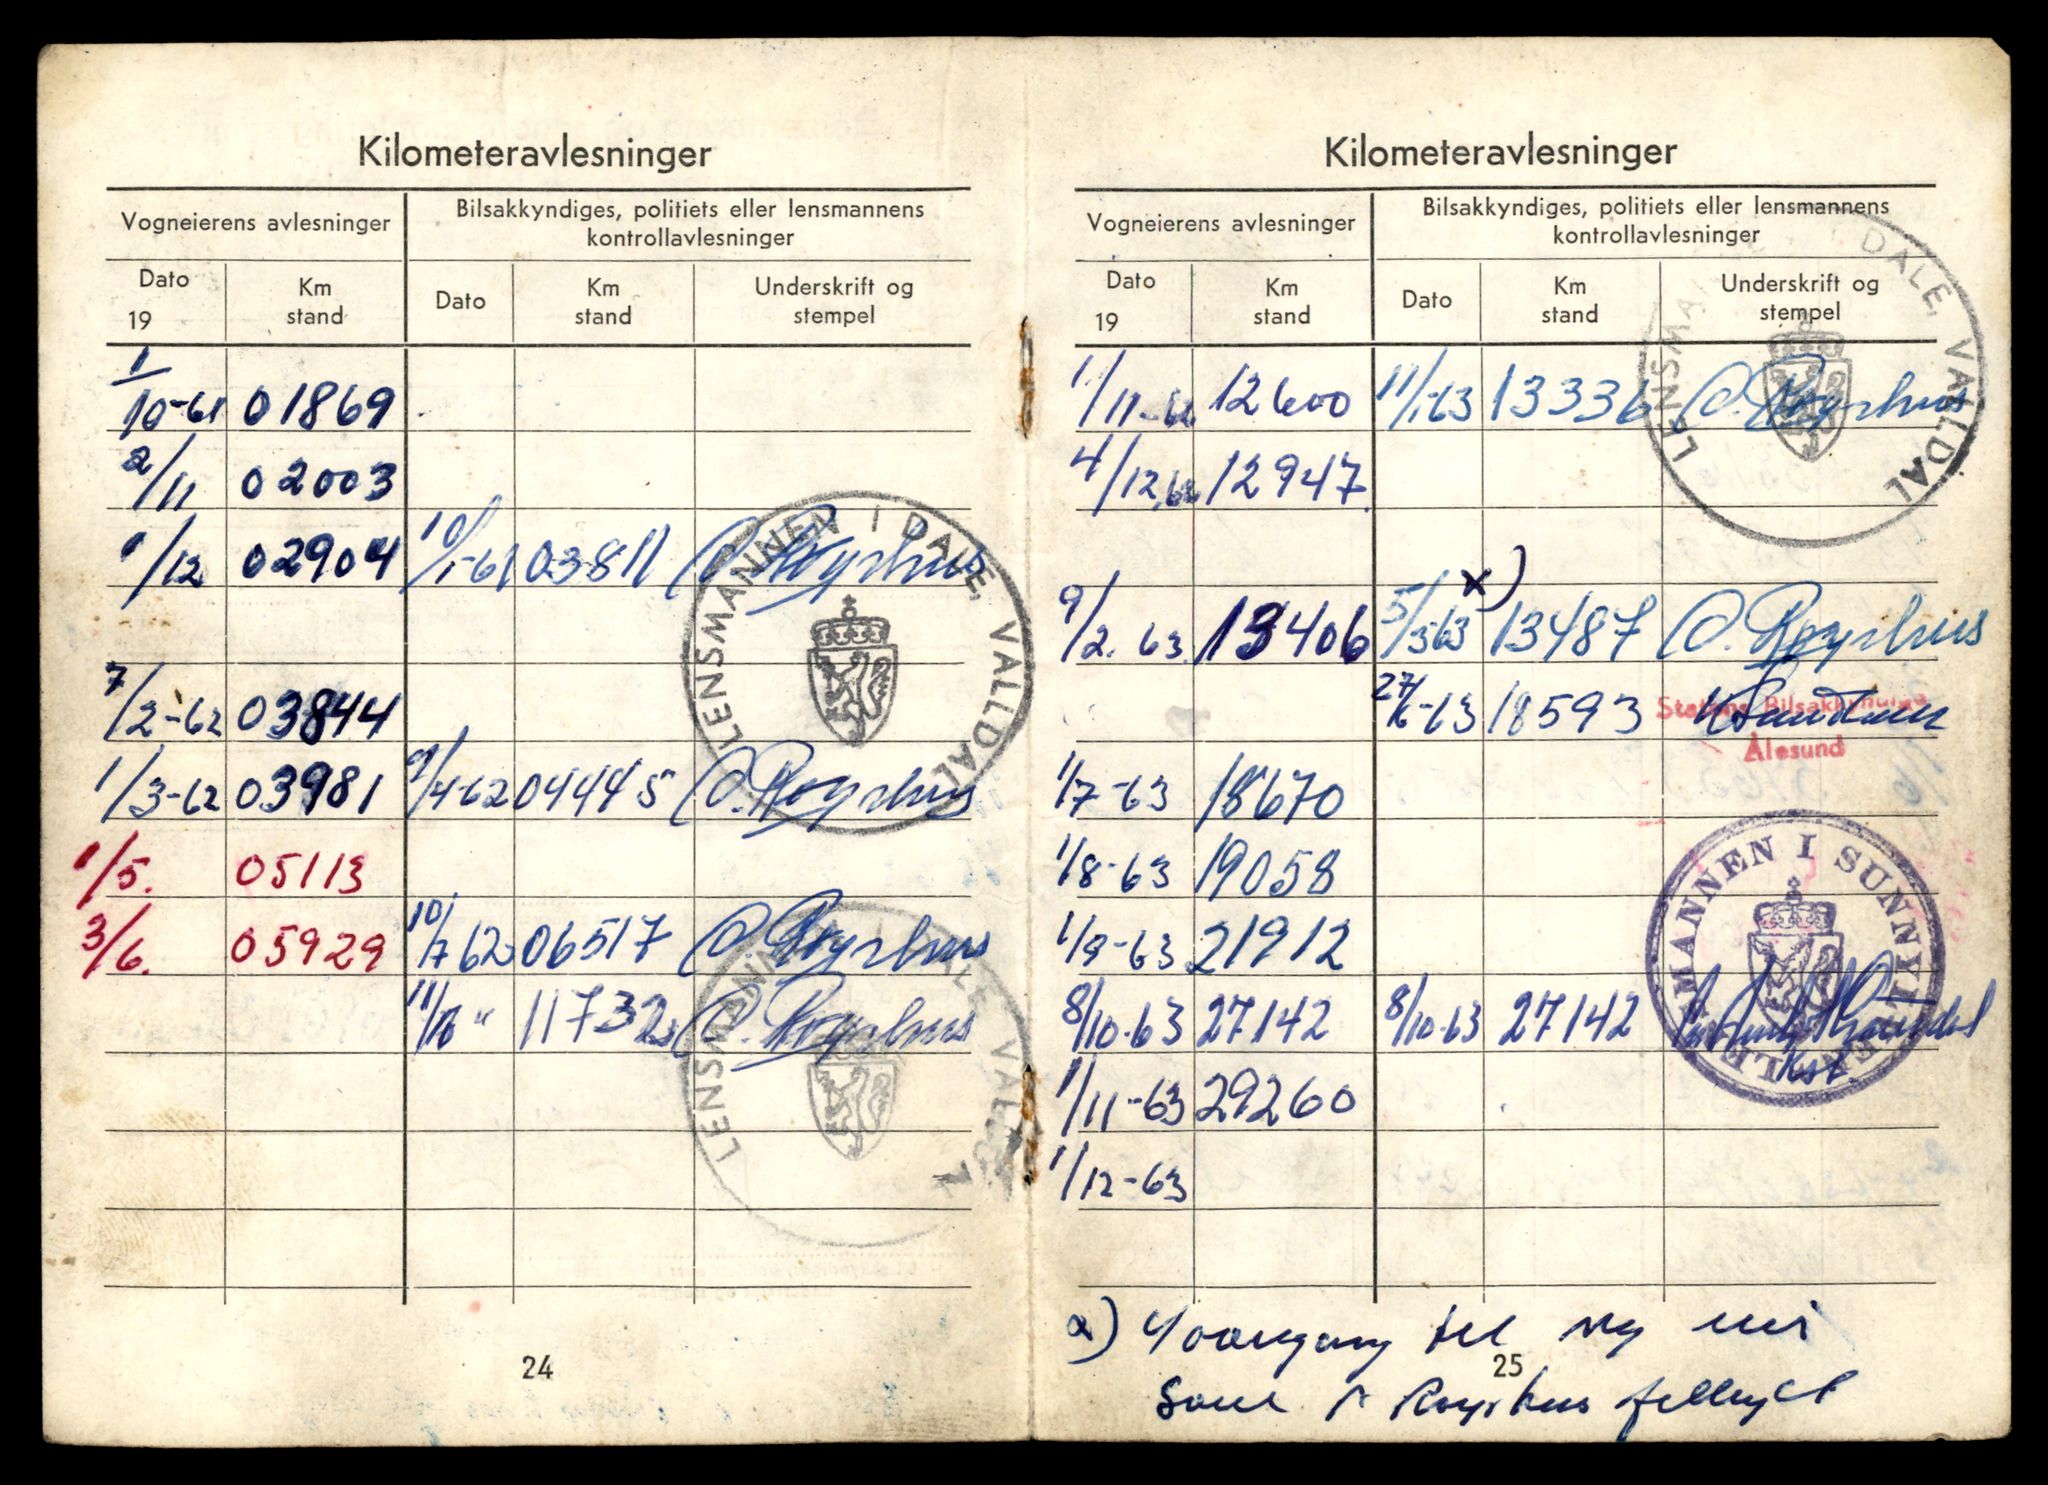 Kilometeravlesninger
Vogneierens avlesninger
Bilsakkyndiges, politiets eller lensmannens
kontrollavlesninger
Dato
19
Km
stand
Dato
Km
stand
Underskrift og
stempel
1/10-61 01869
2/11 02003
1/12 02904 10/1-61 03811 O. Røyrhus
7/2-62 03844
1/3-62 03981 9/4-62 04445 O. Røyrhus
1/5. 05113
3/6. 05929 10/7 62 06517 O. Røyrhus
11732 O. Røyrhus
LENSMANNEN I DALE, VALLDAL
LENSMANNEN I DALE, VALLDAL
24
Kilometeravlesninger
Vogneierens avlesninger
Bilsakkyndiges, politiets eller lensmannens
kontrollavlesninger
Dato
19
Km
stand
Dato
Km
stand
Underskrift og
stempel
LENSMANNEN I DALE, VALLDAL
1/11-62 12600 11/1-63 13336 O. Røyrhus
4/12.62 12947
x)
9/2. 63 13406 5/3-63 13487 O. Røyrhus
27/6-63 18593
Statens Bilsakkyndige
Ålesund
1/7-63 18670
1/8-63 19058
1/9-63 21912
8/10-63 27142 8/10-63 27142
Kst.
LENSMANNEN I SUNNYLVEN
1/11-63 29260
1/12-63
x) til ny
25
Røyrhus